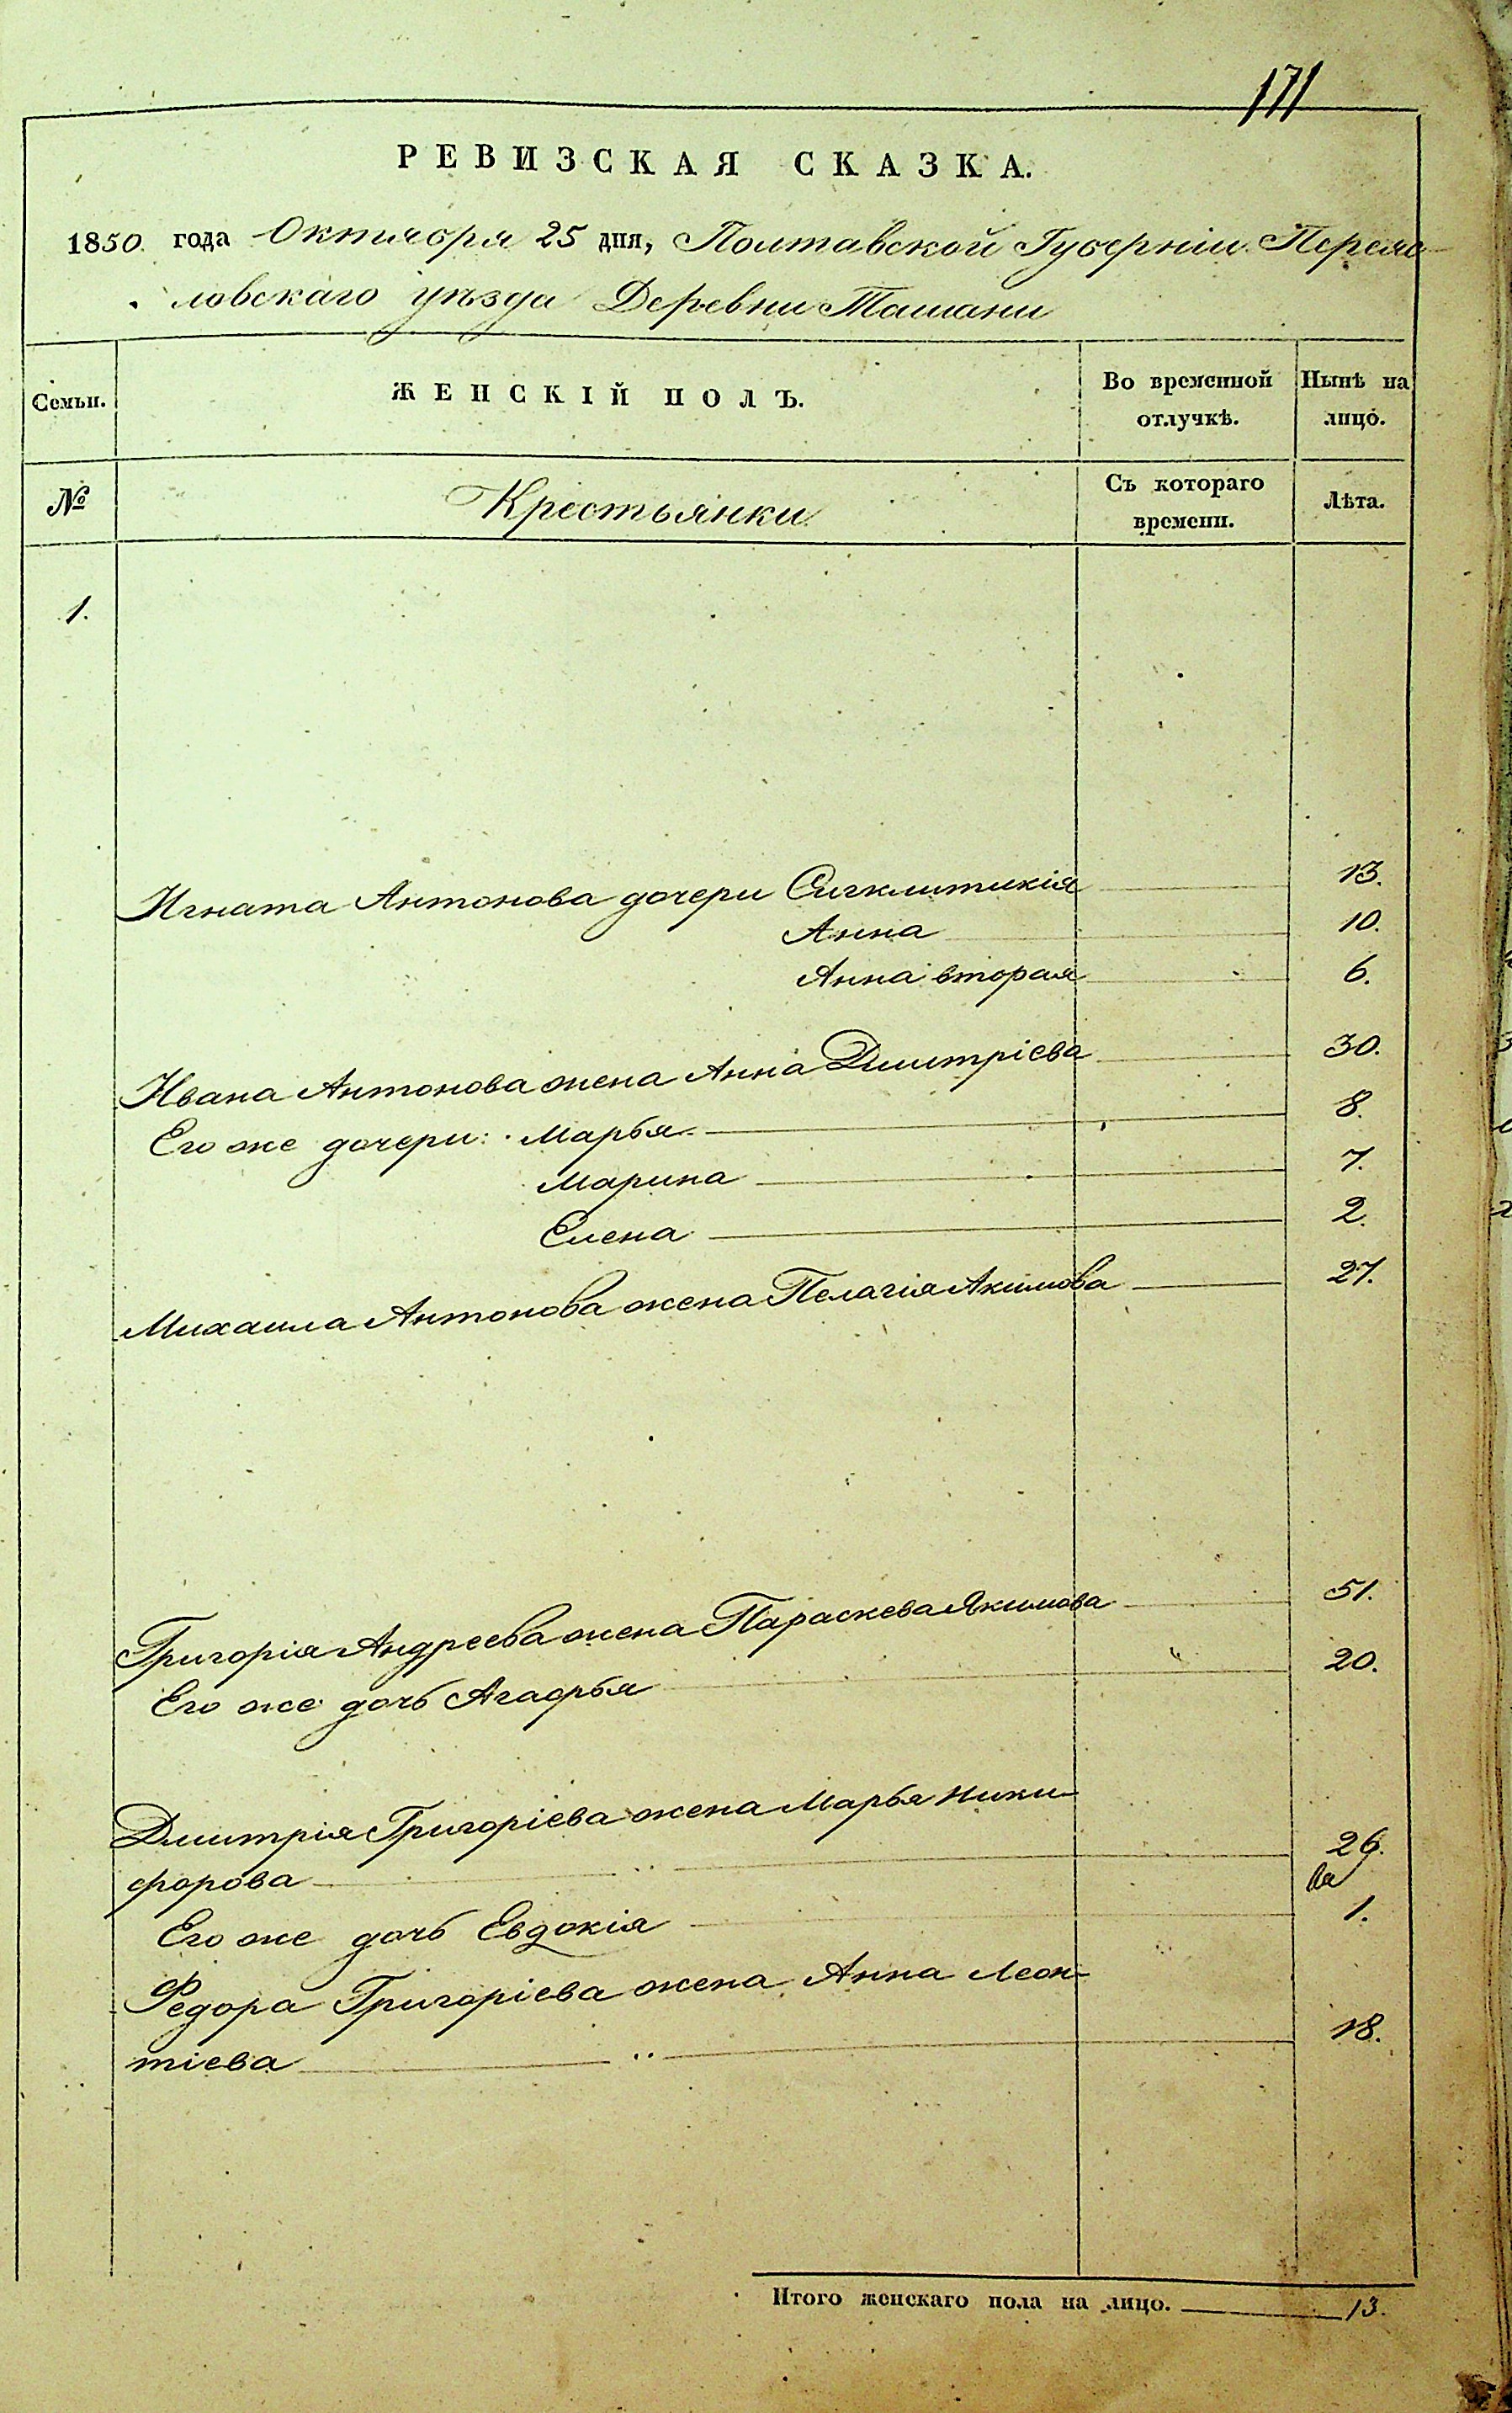 171
РЕВИЗСКАЯ СКАЗКА.
1850 года Октября 25 дня, Полтавской Губерніи Переяс-
ловскаго уѣзда Деревни Ташани
Семьи.
ЖЕНСКІЙ ПОЛЪ.
Во временной
отлучкѣ.
Нынѣ на
лицо.
№
Крестьянки
Съ котораго
времени.
Лѣта.
1.
Игната Антонова дочери Сигклитикія 13.
Анна 10.
Анна вторая 6.
Ивана Антонова жена Анна Дмитріева 30.
Его же дочери: Марья 8.
Марина 7.
Елена 2.
Михаила Антонова жена Пелагія Акимова 27.
Григорія Андреева жена Параскева Якимова 51.
Его же дочь Агафья 20.
Дмитрія Григоріева жена Марья Ники-
форова 26.
Его же дочь Евдокія 1.
Федора Григоріева жена Анна Леон-
тіева 18.
Итого женскаго пола на лицо. 13.